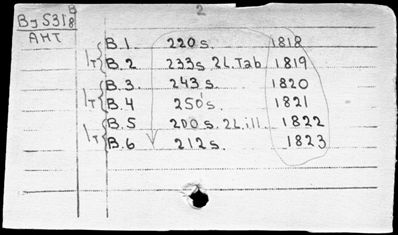 2
By 5318 B
AHT
1T { B.1 220 s. 1818
B.2 233 s. 2 L. Tab 1819
1T { B.3. 243 s. 1820
B.4 250 s. 1821
1T { B.5 200 s. 2 L. ill. 1822
B.6 212 s. 1823